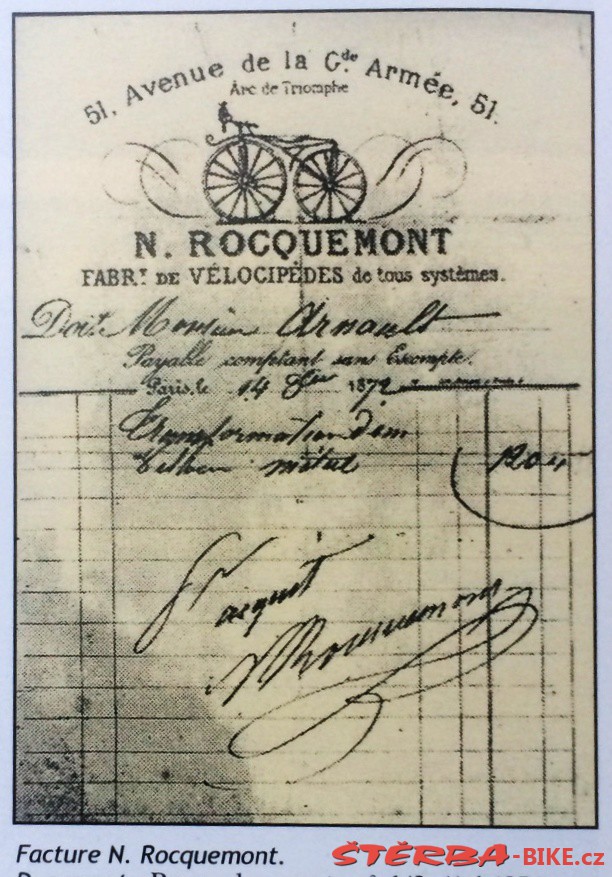 51, Avenue de la Gde Armée, 51.
Arc de Triomphe
N. ROCQUEMONT
FABRT DE VÉLOCIPÈDES de tous systèmes.
Doit Monsieur Arnault
Payable comptant sans Escompte.
Paris, le 14 8bre 1872
Transformation d'un
métal 120
Pr acquit
NRocquemont
Facture N. Rocquemont.
ŠTĚRBA-BIKE.cz